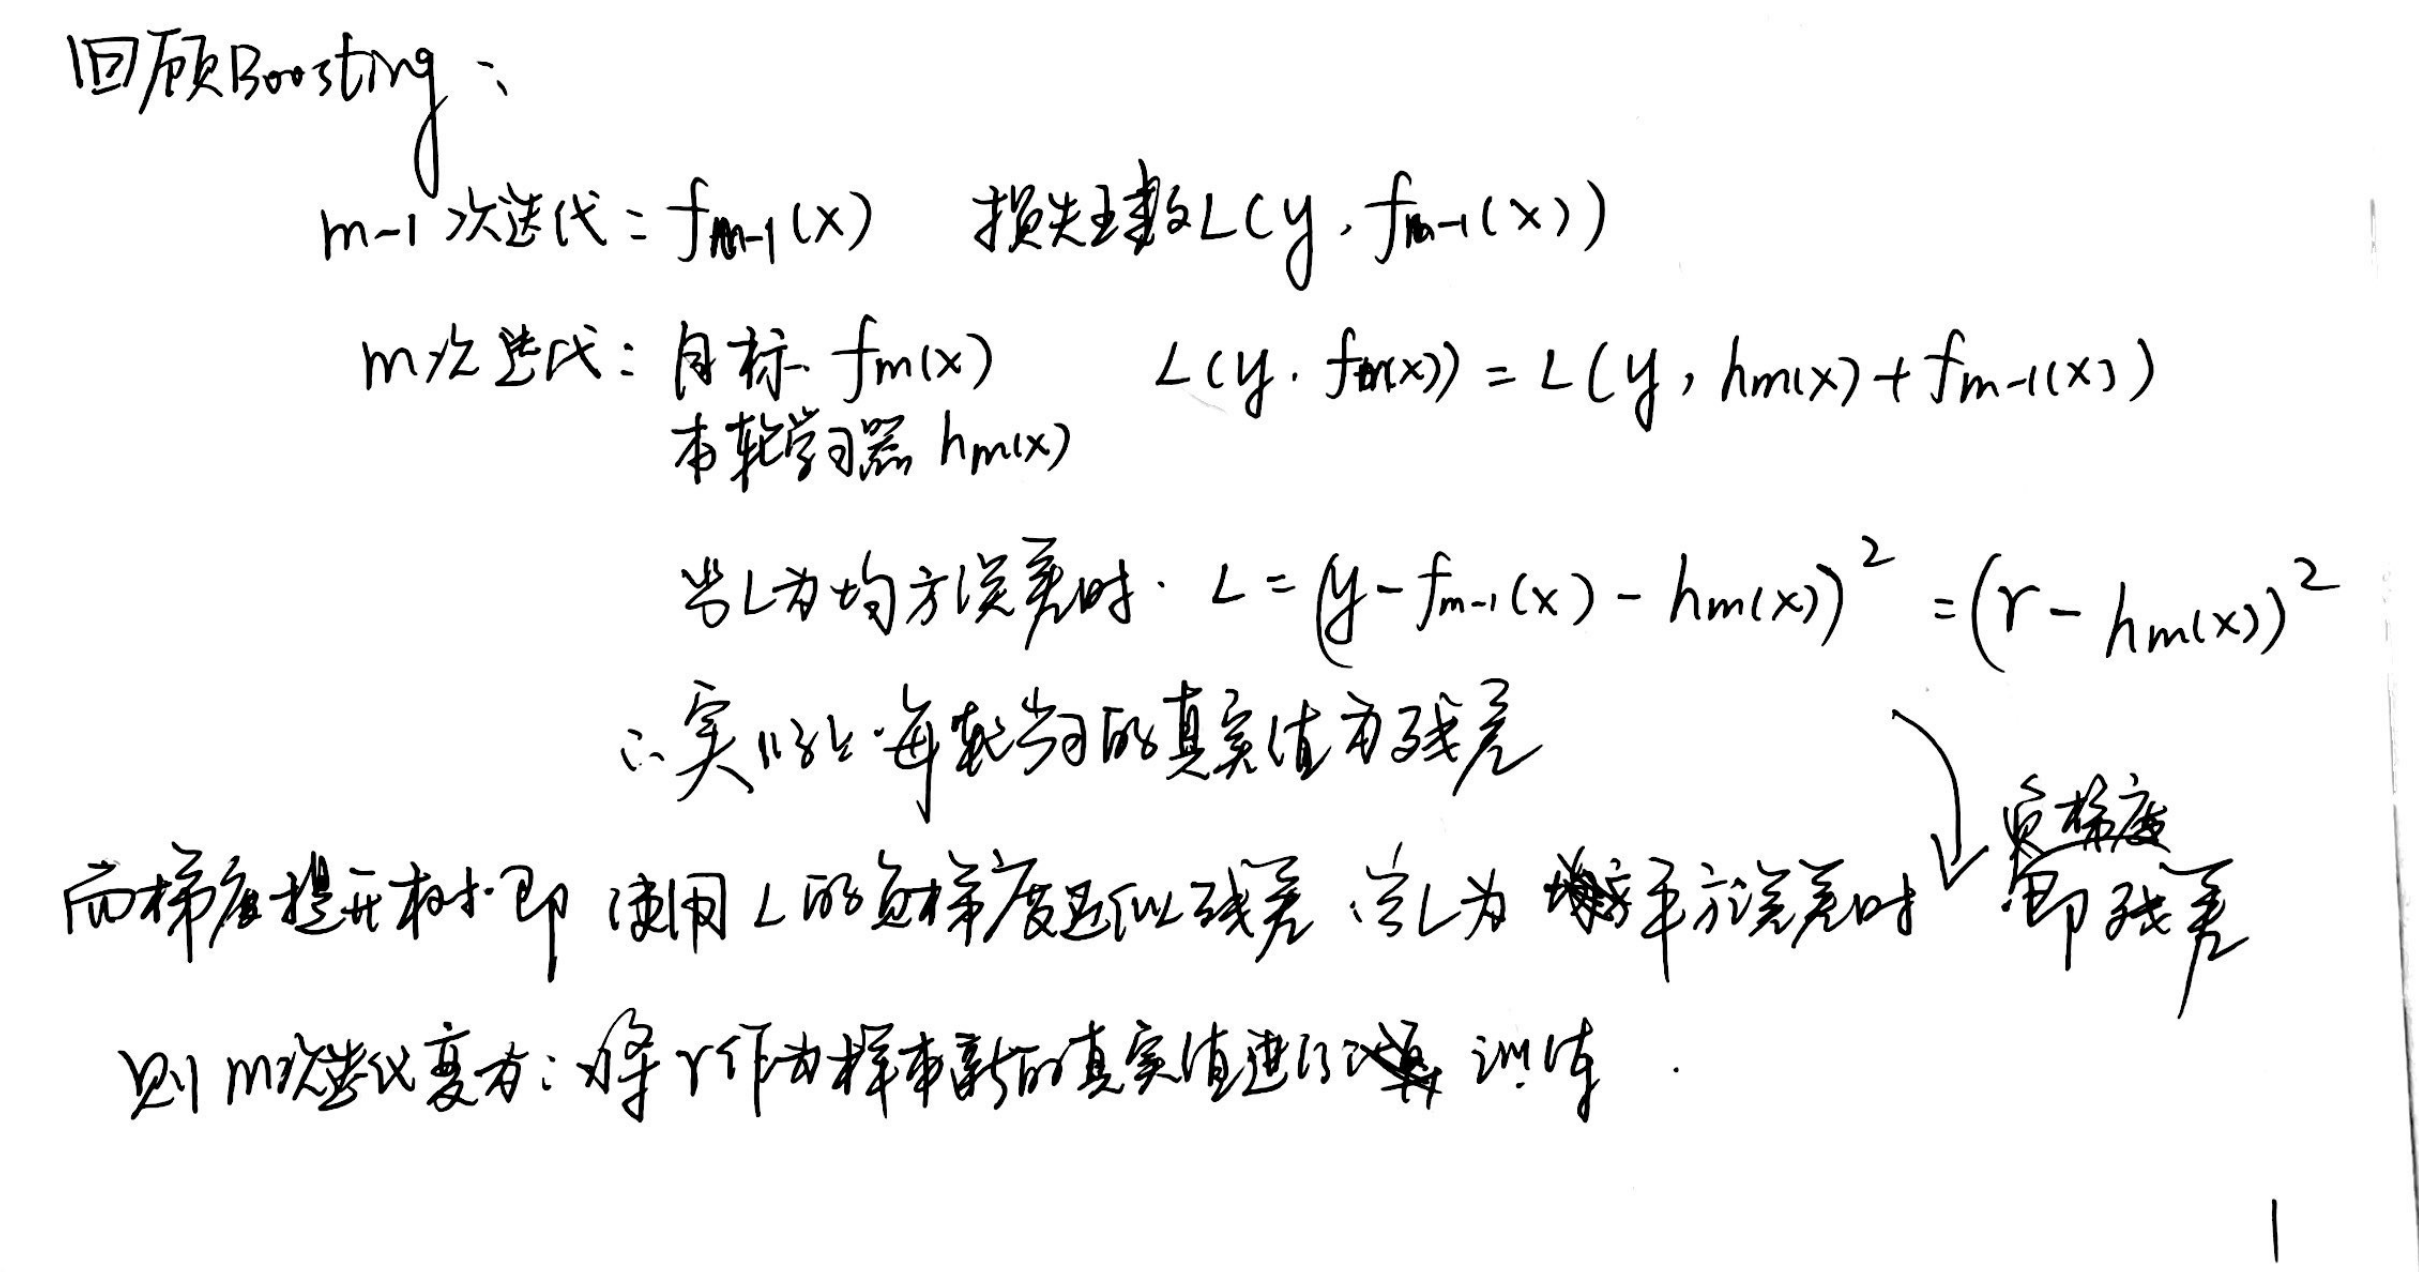 回顾Boosting:
m-1次迭代: fm-1(x) 损失函数L(y, fm-1(x))
m次迭代: 目标 fm(x) L(y, fm(x)) = L(y, hm(x) + fm-1(x))
本轮学习器 hm(x)
当L为均方误差时. L = (y - fm-1(x) - hm(x))² = (r - hm(x))²
∴实际上每轮学习的真实值为残差
负梯度
而梯度提升树.即使用L的负梯度近似残差.当L为平方误差时 即残差
则m次迭代变为:将r作为样本新的真实值进行训练.